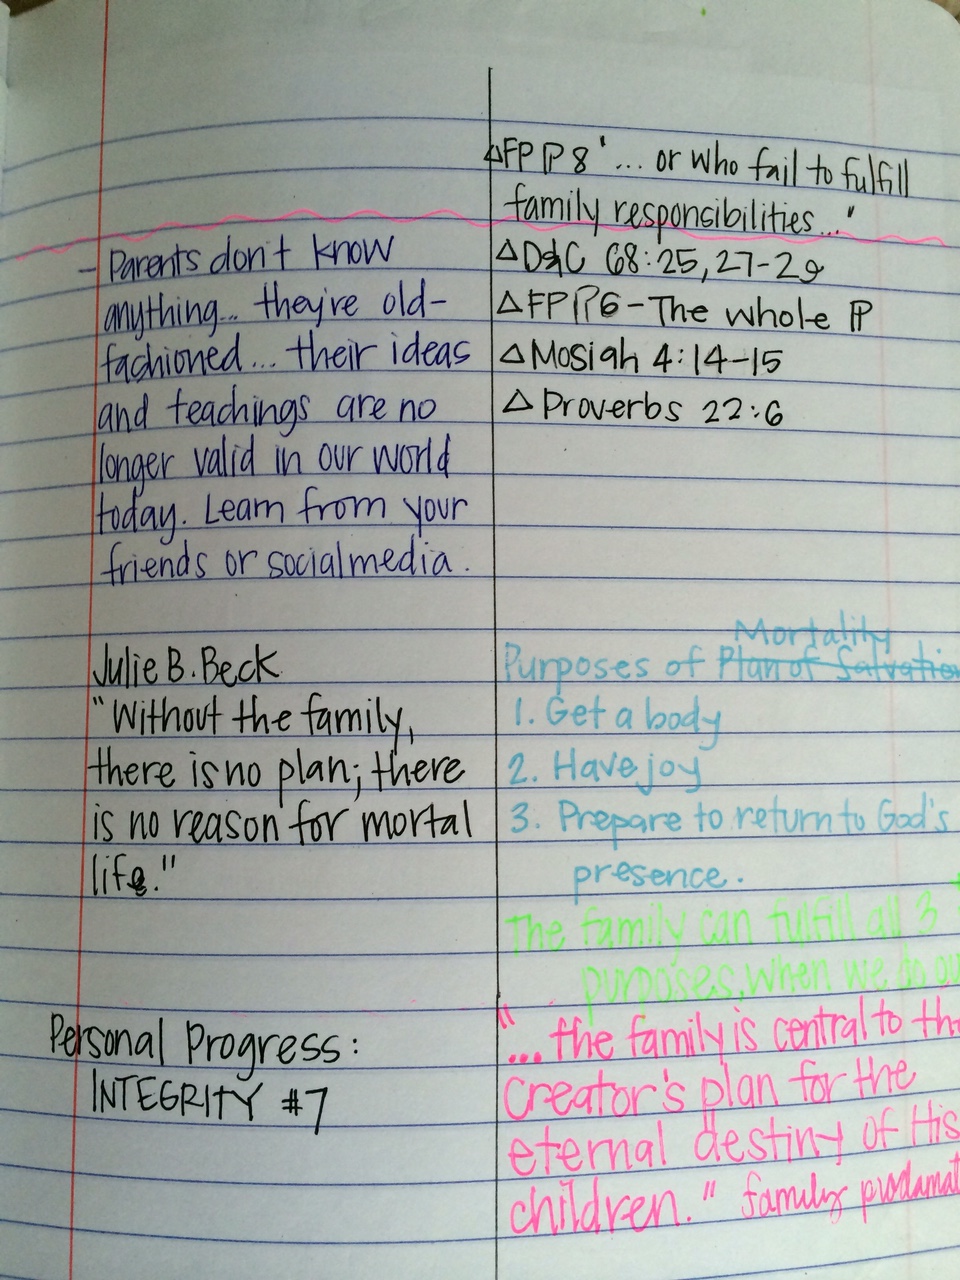 △FP ₱8 "... or who fail to fulfill
family responsibilities..."
- Parents don't know
anything... they're old-
fachioned... their ideas
and teachings are no
longer valid in our world
today. Learn from your
friends or social media.
△D&C 68:25, 27-29
△FP ₱6 - The whole ₱
△Mosiah 4:14-15
△Proverbs 22:6
Julie B. Beck
"Without the family,
there is no plan; there
is no reason for mortal
life."
Mortality
Purposes of Plan of Salvation
1. Get a body
2. Have joy
3. Prepare to return to God's
presence.
The family can fulfill all 3
purposes, when we do
"... the family is central to
Creator's plan for the
eternal destiny of His
children." family
Personal Progress:
INTEGRITY #7